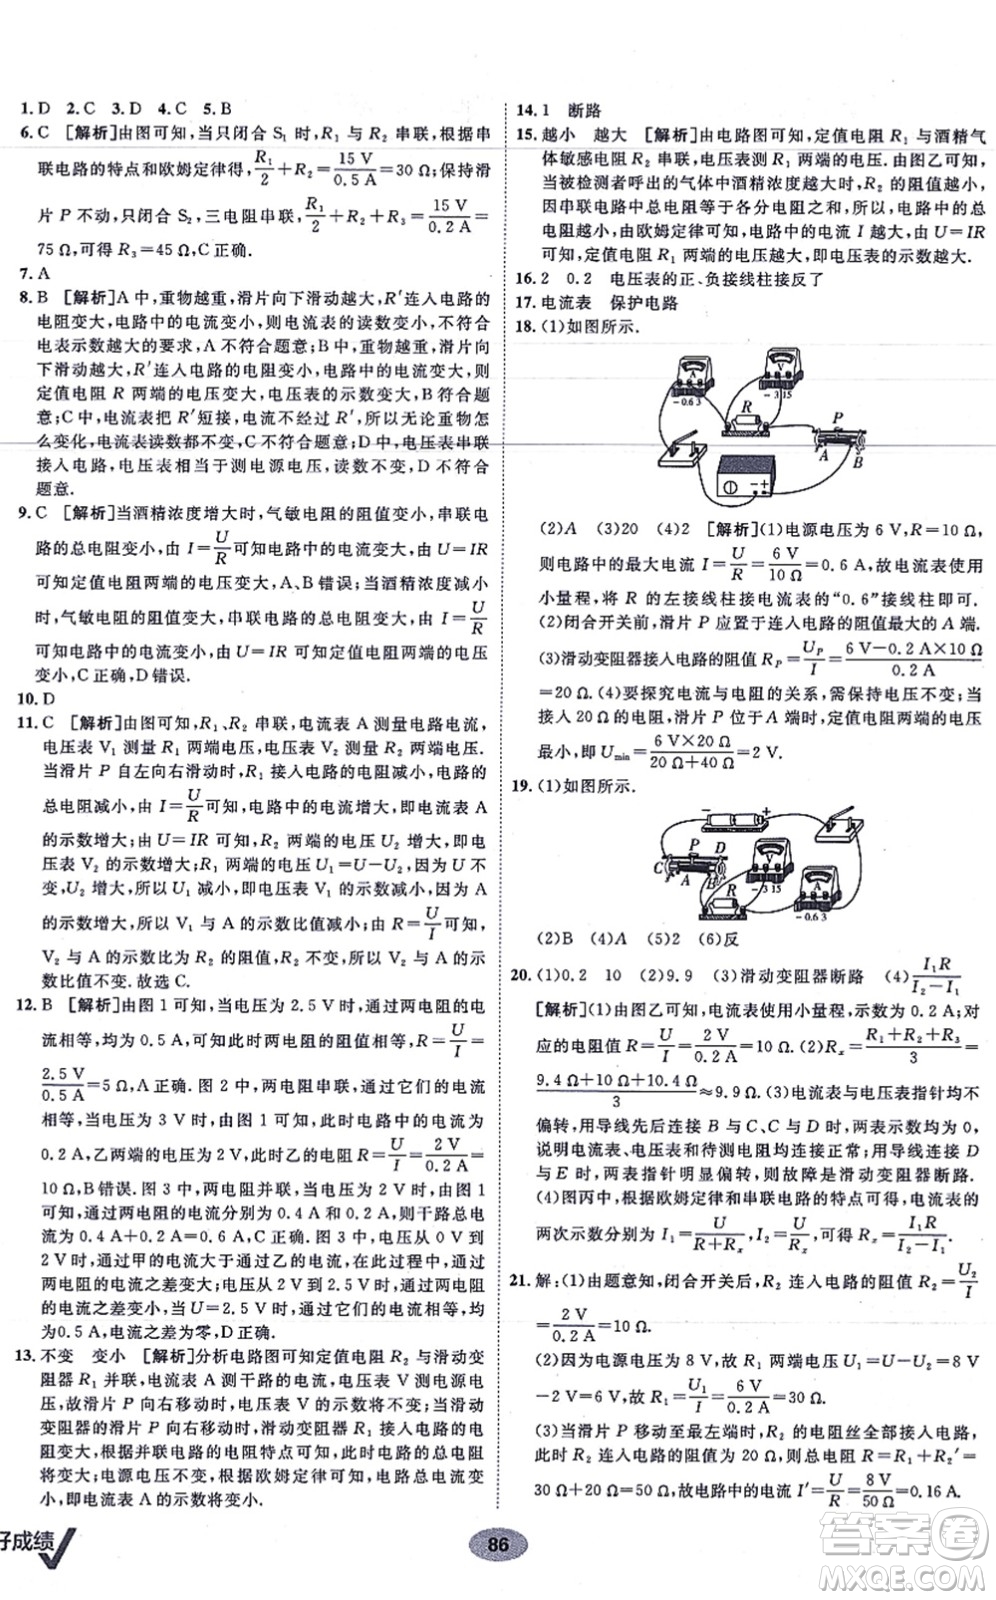 1. D　2. C　3. D　4. C　5. B
6. C　[解析]由图可知,当只闭合 S₁ 时,R₁ 与 R₂ 串联,根据串
联电路的特点和欧姆定律得,R₁/2+R₂=15 V/0.5 A=30 Ω;保持滑
片 P 不动,只闭合 S₂,三电阻串联,R₁/2+R₂+R₃=15 V/0.2 A=
75 Ω,可得 R₃=45 Ω,C 正确.
7. A
8. B　[解析]A 中,重物越重,滑片向下滑动越大,R′连入电路的
电阻变大,电路中的电流变小,电流表的读数变小,不符合
电表示数越大的要求,A 不符合题意;B 中,重物越重,滑片
向下滑动越大,R′连入电路的电阻变小,电路的电流变大,则
定值电阻 R 两端的电压变大,电压表的示数变大,B 符合题
意;C 中,电流表把 R′短接,电流不经过 R′,所以无论重物怎
么变化,电流表读数都不变,C 不符合题意;D 中,电压表串联
接入电路,电压表相当于测电源电压,读数不变,D 不符合
题意.
9. C　[解析]当酒精浓度增大时,气敏电阻的阻值变小,串联电
路的总电阻变小,由 I=U/R可知电路中的电流变大,由 U=IR
可知定值电阻两端的电压变大,A、B 错误;当酒精浓度减小
时,气敏电阻的阻值变大,串联电路的总电阻变大,由 I=U/R
可知电路中的电流变小,由 U=IR 可知定值电阻两端的电压
变小,C 正确,D 错误.
10. D
11. C　[解析]由图可知,R₁、R₂ 串联,电流表 A 测量电路电流,
电压表 V₁ 测量 R₁ 两端电压,电压表 V₂ 测量 R₂ 两端电压.
当滑片 P 由左向右滑动时,R₁ 接入电路的电阻减小,电路
总电阻减小,由 I=U/R可知,电路中的电流增大,电流表 A
的示数增大;由 U=IR 可知,R₂ 两端的电压 U₂ 增大,即电
压表 V₂ 的示数增大;R₁ 两端的电压 U₁=U-U₂,因 U 不
变,U₂ 增大,所以 U₁ 减小,即电压表 V₁ 的示数减小,又 A
的示数增大,所以 V₁ 与 A 的示数比值减小;由 R=U/I可知,
V₂ 与 A 的示数比值等于 R₂ 的阻值,大小不变,所以 V₂ 与 A 的示
数比值不变.故选 C.
12. B　[解析]由图 1 可知,当电压为 2.5 V 时,通过两电阻的电
流相等,均为 0.5 A,可知此时两电阻的阻值相等,为 R=U/I=
2.5 V/0.5 A=5 Ω,A 正确.图 2 中,两电阻串联,通过两电阻的电流
相等,当电压为 3 V 时,由图 1 可知,此时电路中的电流为
0.2 A,乙两端的电压为 2 V,此时乙的电阻 R=U/I=2 V/0.2 A=
10 Ω,B 错误.图 3 中,两电阻并联,当电压为 2 V 时,由图 1
可知,通过两电阻的电流分别为 0.4 A 和 0.2 A,则干路总电流为
0.4 A+0.2 A=0.6 A,C 正确.由图 1 可知,当电压为 2 V
时,通过甲的电流大于通过乙的电流,从 2 V 到 2.5 V,通过
两电阻的电流之差变小,当 U=2.5 V 时,通过两电阻的电流相等,均
为0.5 A,电流之差为零,D 正确.
13. 不变　变小　[解析]分析电路图可知定值电阻 R₂ 与滑动变
阻器 R₁ 并联,电流表 A 测干路的电流,电压表 V 测电源电压,有
关.当滑动变阻器的滑片 P 向右移动时,滑动变阻器 R₁ 接入电路的
电阻变大,根据并联电路的电阻特点可知,电路的总电阻
将变大;电源电压不变,根据欧姆定律可知,电路总电流变
小,即电流表 A 的示数将变小.
14. 1　断路
15. 越小　越大　[解析]由电路图可知,定值电阻 R₁ 与酒精气
体敏感电阻 R₂ 串联,电压表测 R₁ 两端的电压.由图乙可知,
当被检测者呼出的气体中酒精浓度越大时,R₂ 的阻值越小,
因串联电路中总电阻等于各分电阻之和,所以,电路中的总
电阻越小,由欧姆定律可知,电路中的电流 I 越大,由 U=IR
可知,定值电阻 R₁ 两端的电压越大,即电压表的示数越大.
16. 2　0.2　电压表的正、负接线柱接反了
17. 电流表　保护电路
18. (1)如图所示.
A
-0.6 3
V
-3 15
R
P
A
B
- +
(2)A　(3)20　(4)2　[解析](1)电源电压为 6 V,R=10 Ω,
则电路中的最大电流 I=U/R=6 V/10 Ω=0.6 A,故电流表使用
小量程,将 R 的左接线柱接电流表的“0.6”接线柱即可.
(2)闭合开关前,滑片 P 应置于连入电路的阻值最大的 A 端.
(3)滑动变阻器接入电路的阻值 Rₚ=Uₚ/I=(6 V-0.2 A×10 Ω)/0.2 A
=20 Ω.(4)要探究电流与电阻的关系,需保持电压不变;当
接入 20 Ω 的电阻,滑片 P 位于 A 端时,定值电阻两端的电压
最小,即 Umin=6 V×20 Ω/(20 Ω+40 Ω)=2 V.
19. (1)如图所示.
- +
C
P
D
A
B
V
-3 15
R
A
-0.6 3
(2)B　(4)A　(5)2　(6)反
20. (1)0.2　10　(2)9.9　(3)滑动变阻器断路　(4)I₁R/(I₂-I₁)
[解析](1)由图乙可知,电流表使用小量程,示数为 0.2 A;对
应的电阻值 R=U/I=2 V/0.2 A=10 Ω.(2)Rₓ=(R₁+R₂+R₃)/3=
(9.4 Ω+10 Ω+10.4 Ω)/3≈9.9 Ω.(3)电流表与电压表指针均不
偏转,用导线先后连接 B 与 C、C 与 D 时,两表示数均为 0,
说明电流表、电压表和待测电阻均连接正常;用导线连接 D
与 E 时,两表指针明显偏转,说明故障为滑动变阻器断路.
(4)图丙中,根据欧姆定律和串联电路的特点可得,电流表的
两次示数分别为 I₁=U/(R+Rₓ),I₂=U/Rₓ,可得 Rₓ=I₁R/(I₂-I₁).
21. 解:(1)由题意知,闭合开关后,R₂ 连入电路的阻值 R₂=U₂/I=
2 V/0.2 A=10 Ω.
(2)因为电源电压为 8 V,所以 R₁ 两端电压 U₁=U-U₂=8 V
-2 V=6 V,故 R₁=U₁/I=6 V/0.2 A=30 Ω.
(3)当滑片 P 移动至最左端时,R₂ 的电阻丝全部接入电路,
则连入电路的阻值为 20 Ω,所以总电阻 R=R₁+R₂′=
30 Ω+20 Ω=50 Ω.故电路中的电流 I′=U/R=8 V/50 Ω=0.16 A.
好成绩
86
答案圈
MXQE.COM